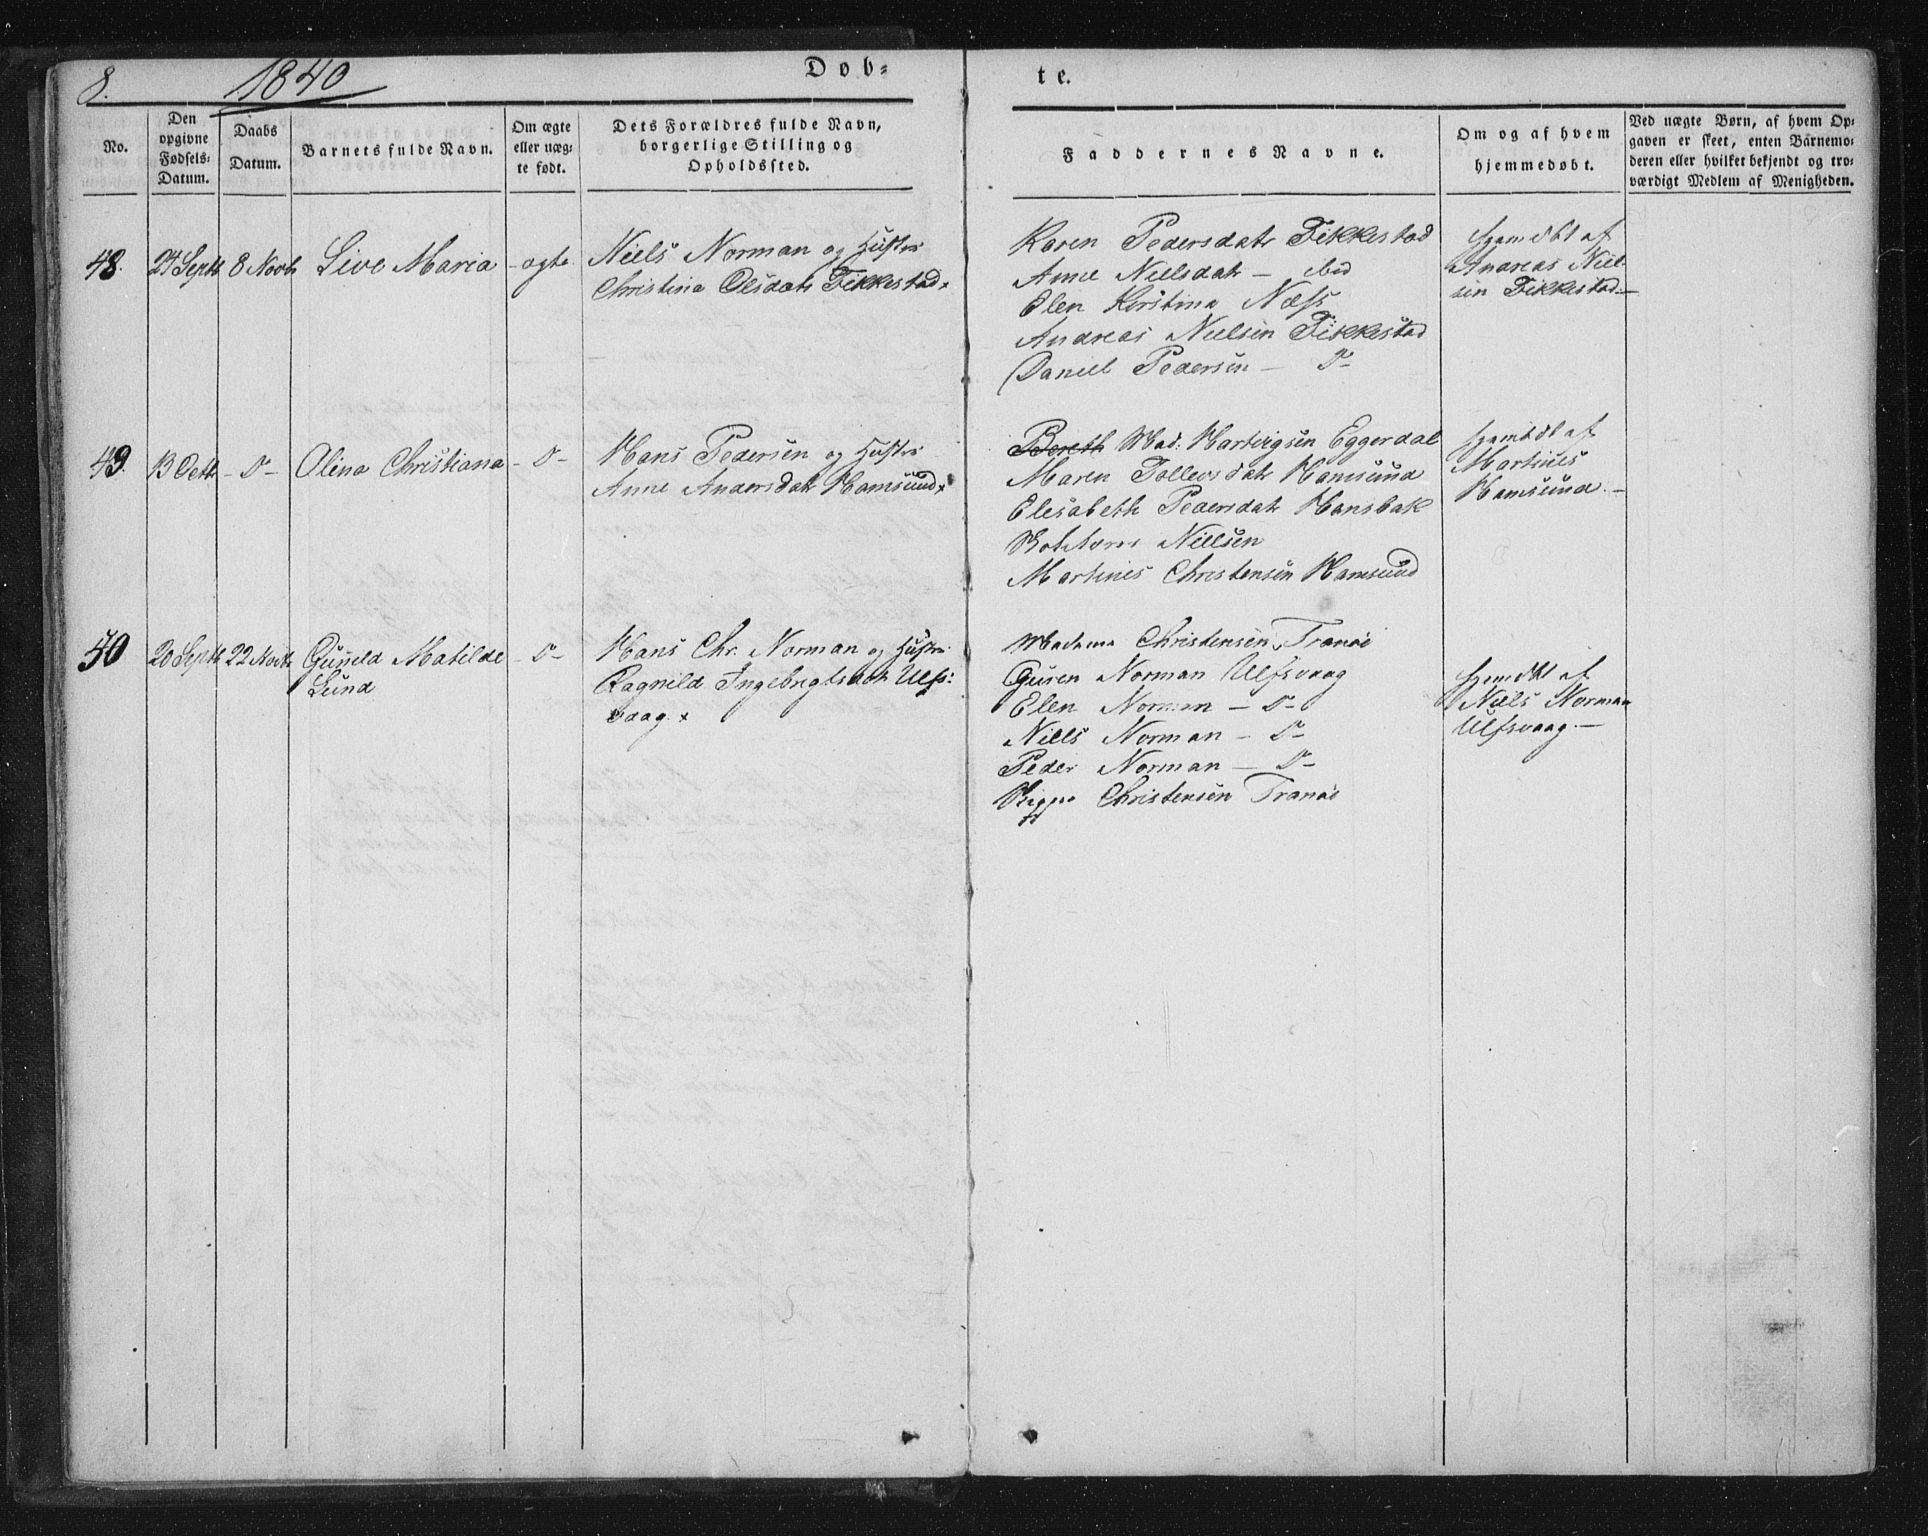 8.
1840
Døb-
te.
No.
Den
opgivne
Fødsels-
Datum.
Daabs
Datum.
Barnets fulde Navn.
Om ægte
eller uæg-
te født.
Dets Forældres fulde Navn,
borgerlige Stilling og
Opholdssted.
Faddernes Navne.
Om og af hvem
hjemmedøbt.
Ved uægte Børn, af hvem Op-
gaven er skeet, enten Barnemo-
deren eller hvilket bekjendt og tro-
værdigt Medlem af Menigheden.
48.
24 Septb
8 Novb
Live Maria
- ægte
Niels Norman og Hustru
Christina Olsdatr Fikkestad
Karen Pedersdatr Fikkestad
Anne Nielsdatr - ibid
Elen Kirstina Næss
Andreas Nielsen Fikkestad
Daniel Pedersen -
hjemdbt af
Andreas Niel-
sen Fikkestad.-
49.
13
Olina Christiana
Hans Pedersen og Hustru
Anne Andersdatr Hamsund
Bereth Mad. Hartvigsen Eggerdal
Maren Tollevsdatr Hamsund
Elesabeth Pedersdatr Hansbak
Nielsen
Martines Christensen Hamsund
hjemdbt af
Martines
Hamsund.-
50
20 Septb
22 Novb
Guneld Matilde
Lund
Hans Chr. Norman og Hustru
Ragnild Ingebrigtsdatr Ulfs-
vaag.
Madame Christensen, Tranøe
Guren Norman Ulfsvaag
Elen Norman -
Niels Norman -
Peder Norman -
Christensen Tranøe
hjemdbt af
Niels Norman
Ulfsvaag.-